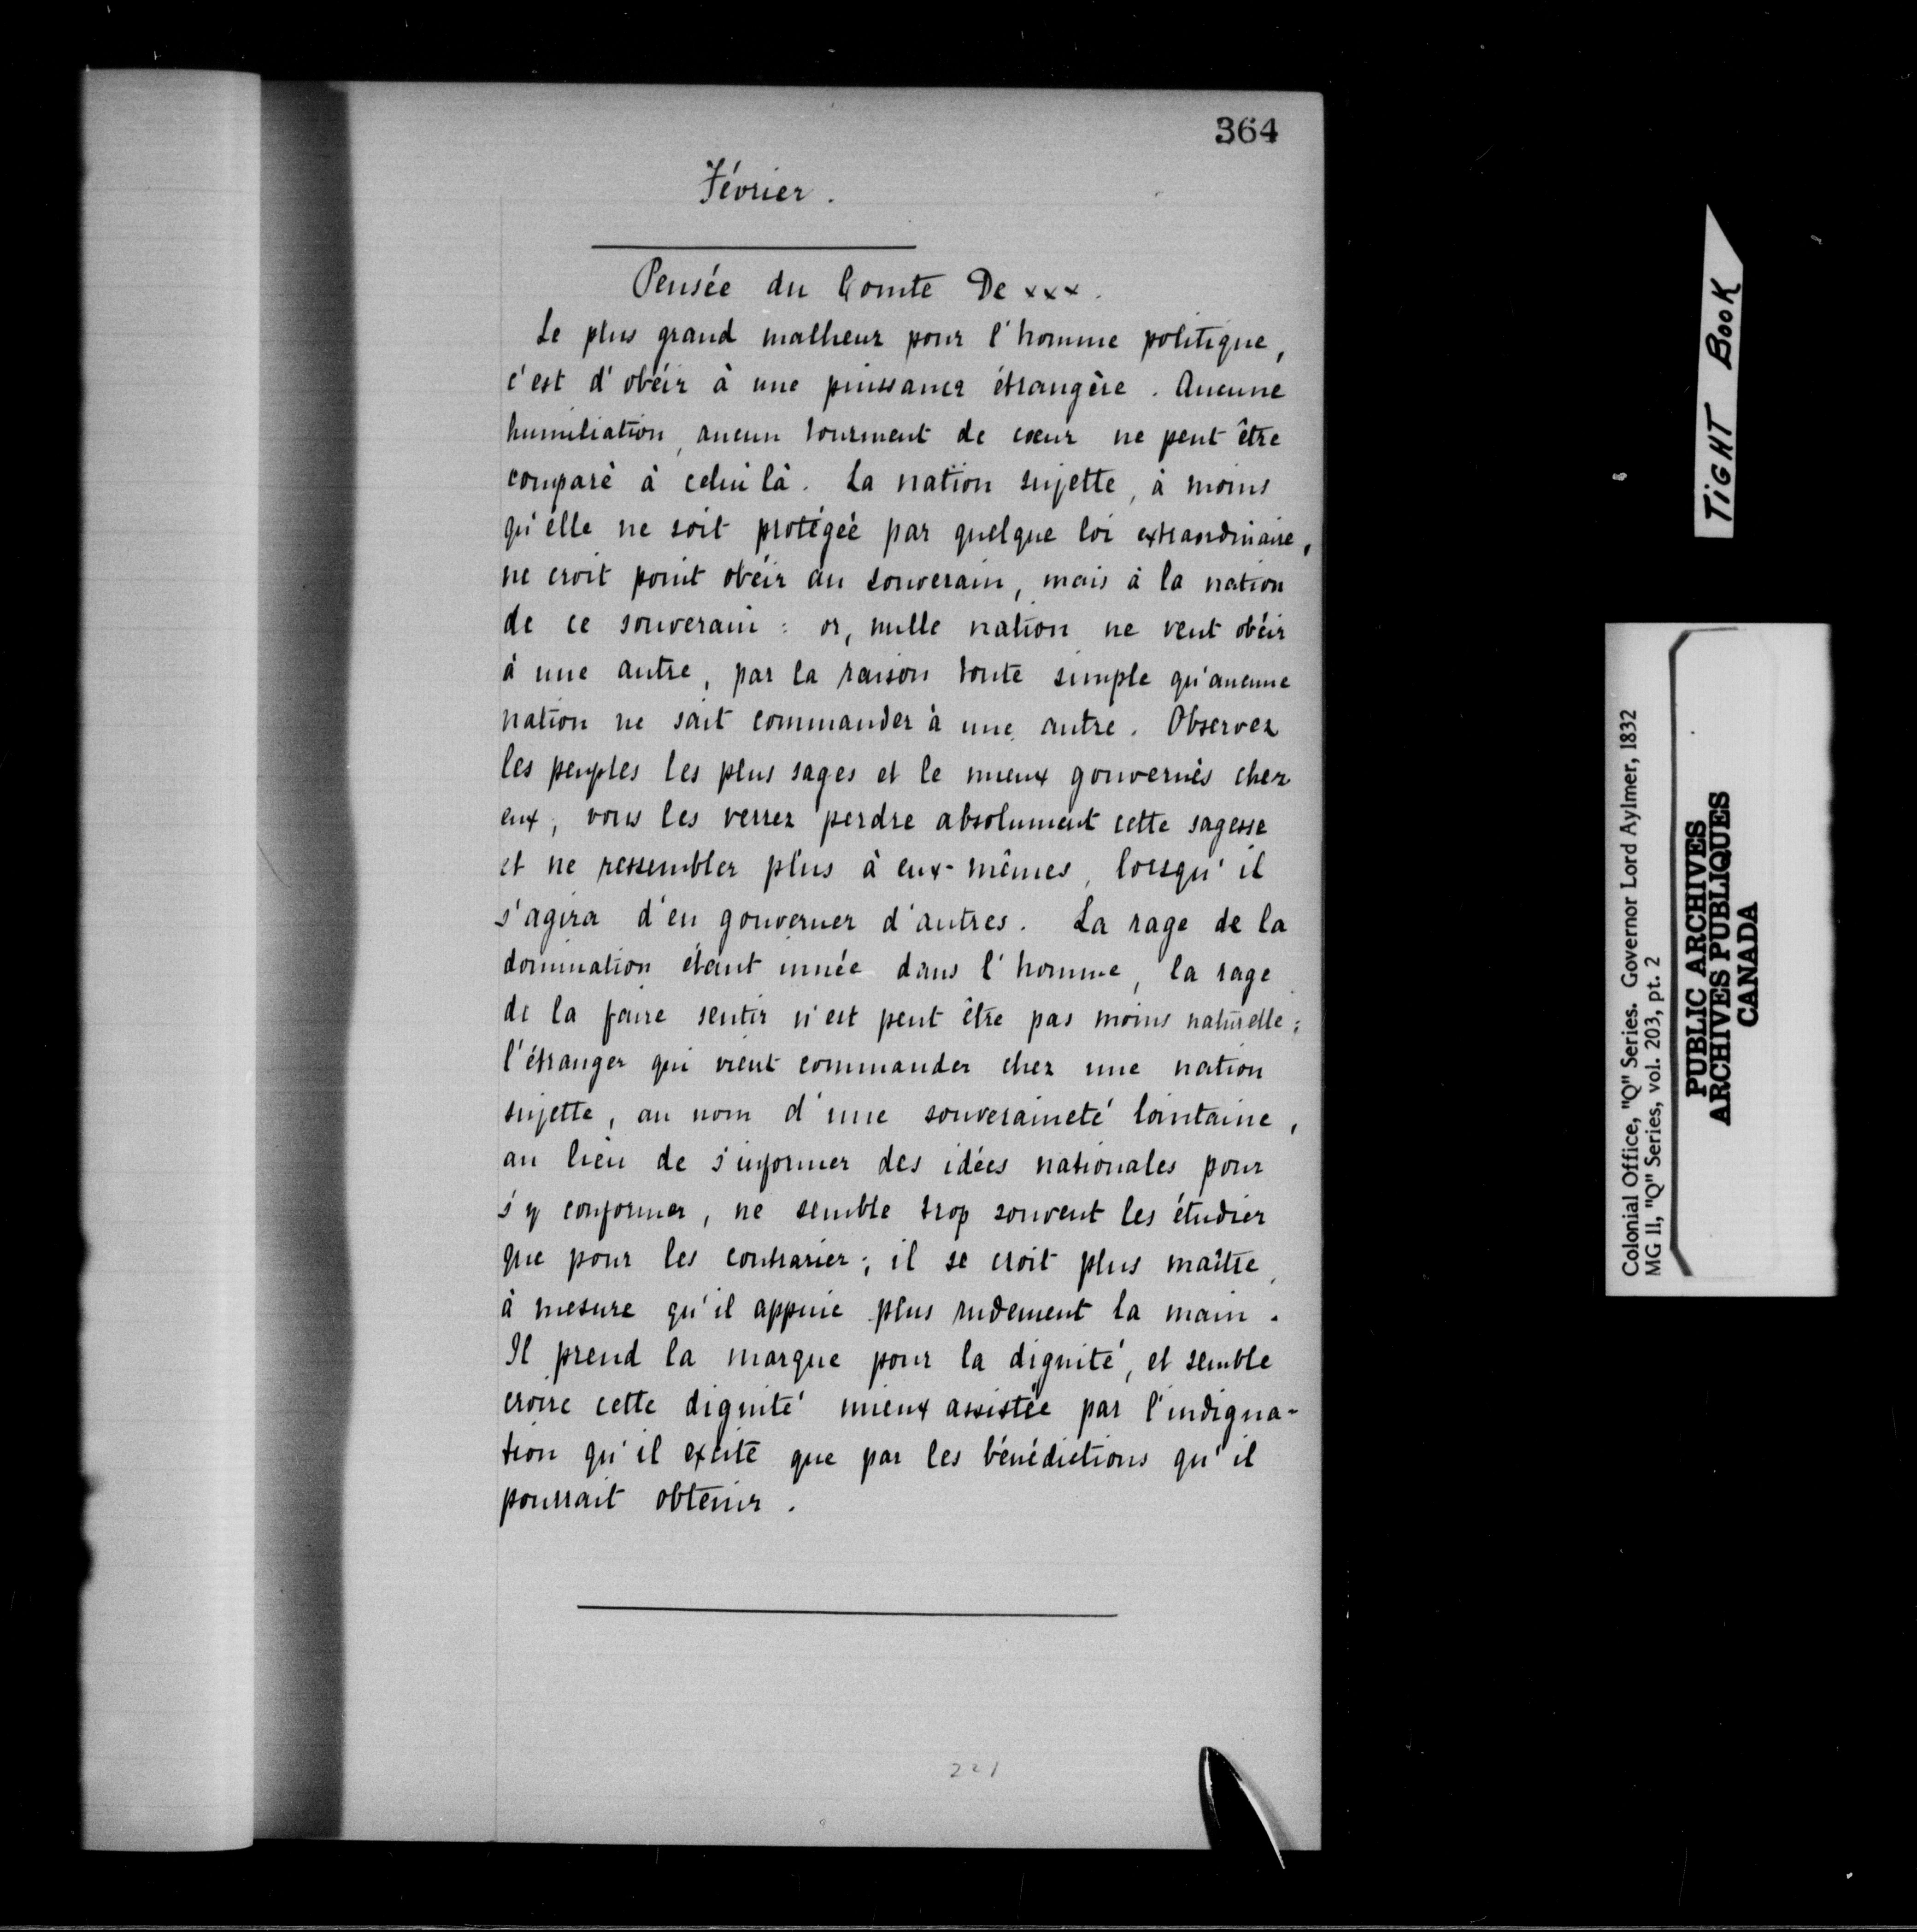 364
Février.
Pensée du Comte De xxx.
Le plus grand malheur pour l'homme politique,
c'est d'obéir à une puissance étrangère. Aucune
humiliation, aucun tourment de cœur ne peut être
comparé à celui là. La nation sujette, à moins
qu'elle ne soit protégée par quelque loi extraordinaire,
ne croit point obéir au souverain, mais à la nation
de ce souverain : or, nulle nation ne veut obéir
à une autre, par la raison toute simple qu'aucune
nation ne sait commander à une autre. Observez
les peuples les plus sages et le mieux gouvernés chez
eux, vous les verrez perdre absolument cette sagesse
et ne ressembler plus à eux-mêmes, lorsqu'il
s'agira d'en gouverner d'autres. La rage de la
domination étant innée dans l'homme, la rage
de la faire sentir n'est peut être pas moins naturelle;
l'étranger qui vient commander chez une nation
sujette, au nom d'une souveraineté lointaine,
au lieu de s'informer des idées nationales pour
s'y conformer, ne semble trop souvent les étudier
que pour les contrarier; il se croit plus maître,
à mesure qu'il appuie plus rudement la main.
Il prend la morgue pour la dignité, et semble
croire cette dignité mieux assistée par l'indigna-
tion qu'il excite que par les bénédictions qu'il
pourrait obtenir.
221
TIGHT BOOK
Colonial Office, "Q" Series. Governor Lord Aylmer, 1832
MG 11, "Q" Series, vol. 203, pt. 2
PUBLIC ARCHIVES
ARCHIVES PUBLIQUES
CANADA